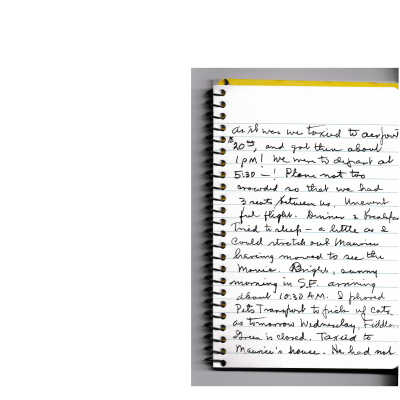 as it was we taxied to airport
$20.00, and got there about
1 PM! We were to depart at
5:30 –! Plane not too
crowded so that we had
3 seats between us. Unevent
ful flight. Dinner & breakfas
Tried to sleep – a little as I
could stretch out Maurice
having moved to see the
Movie. Bright, sunny
morning in S.F. arriving
about 10:30 AM. I phoned
Pets Transport to pick up Cats
as tomorrow Wednesday, Fiddle
Green is closed. Taxied to
Maurice's house. He had not